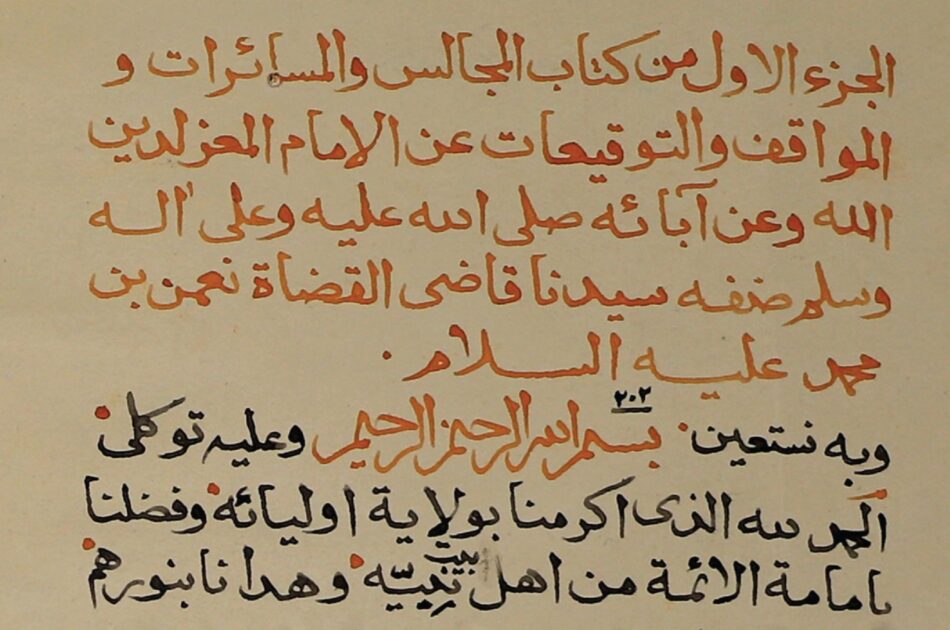 الجزء الاول من كتاب المجالس والمسائرات و
المواقف والتوقيعات عن الامام المعز لدين
الله وعن آبائه صلى الله عليه وعلى اله
وسلم صنفه سيدنا قاضى القضاة نعمن بن
محمد عليه السلام
٢٠٢
وبه نستعين بسم الله الرحمن الرحيم وعليه توكلى
الحمد لله الذى اكرمنا بولاية اوليائه وفضلنا
بامامة الائمة من اهل بيت نبيّه وهدانا بنورهم